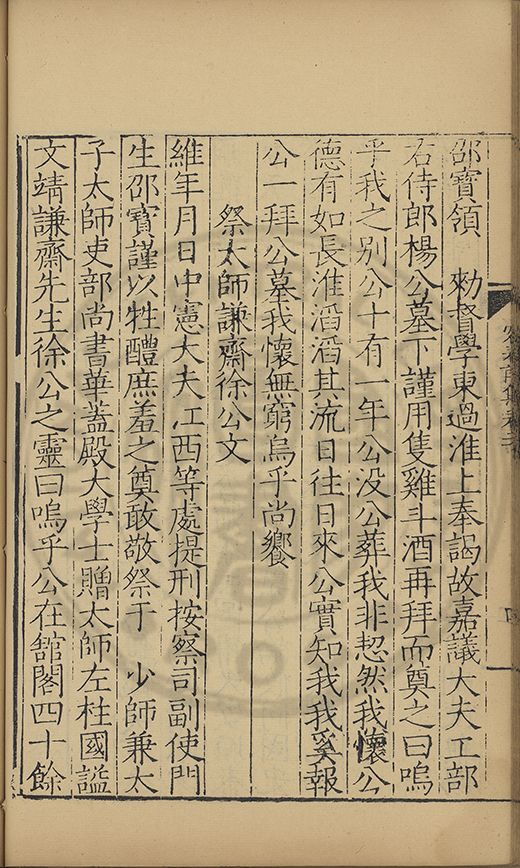 邵寶領　勑督學東過淮上奉謁故嘉議大夫工部
右侍郎楊公墓下謹用隻雞斗酒再拜而奠之曰嗚
乎我之別公十有一年公没公葬我非恝然我懷公
德有如長淮滔滔其流日往日來公實知我我奚報
公一拜公墓我懷無窮烏乎尚饗
祭太師謙齋徐公文
維年月日中憲大夫江西等處提刑按察司副使門
生邵寶謹以牲醴庶羞之奠敢敬祭于　少師兼太
子太師吏部尚書華蓋殿大學士贈太師左柱國謚
文靖謙齋先生徐公之靈曰嗚乎公在舘閣四十餘